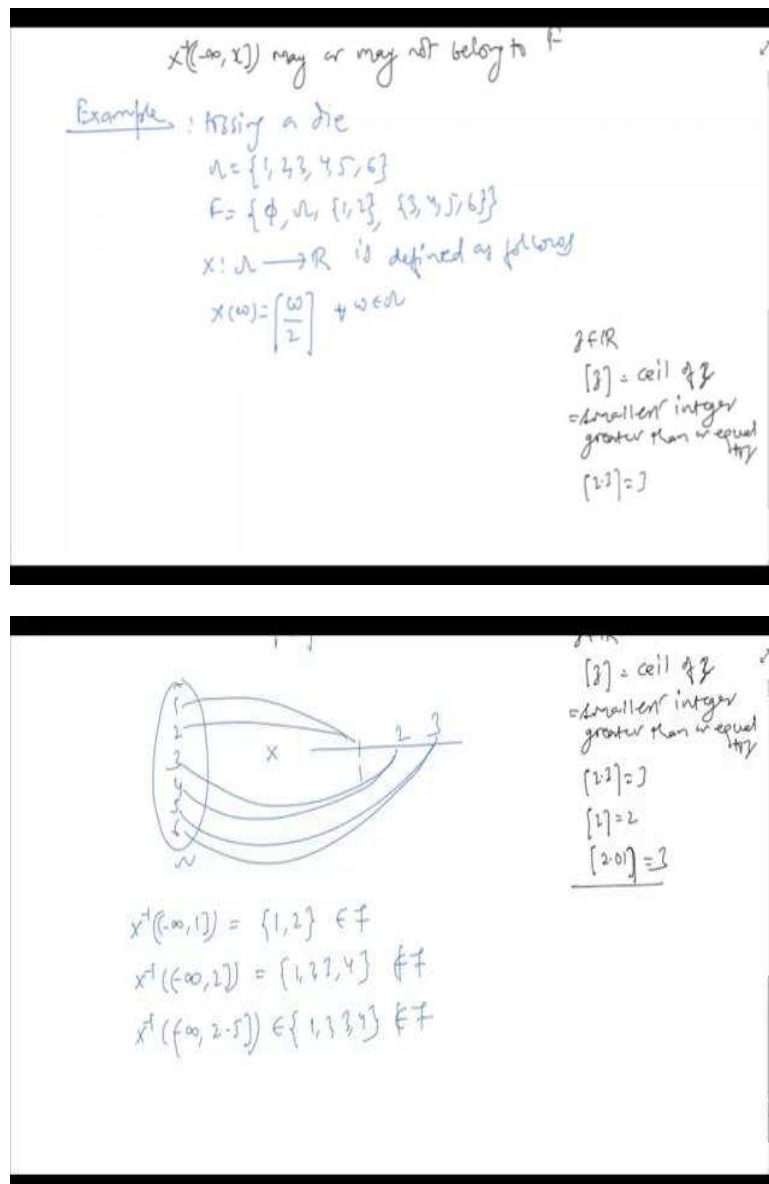 X⁻¹((-∞, x]) may or may not belong to F
Example : tossing a die
Ω = {1, 2, 3, 4, 5, 6}
F = {ϕ, Ω, {1,2}, {3,4,5,6}}
X : Ω → R is defined as follows
X(ω) = ⌈ω/2⌉ ∀ ω ∈ Ω
z ∈ R
⌈z⌉ = ceil of z
= smallest integer
greater than or equal
to z
⌈2.3⌉ = 3
⌈z⌉ = ceil of z
= smallest integer
greater than or equal
to z
⌈2.3⌉ = 3
⌈2⌉ = 2
⌈2.01⌉ = 3
1
2
3
4
5
6
Ω
X
1 2 3
X⁻¹((-∞, 1]) = {1,2} ∈ F
X⁻¹((-∞, 2]) = {1,2,3,4} ∉ F
X⁻¹((-∞, 2.5]) ∈ {1,2,3,4} ∉ F